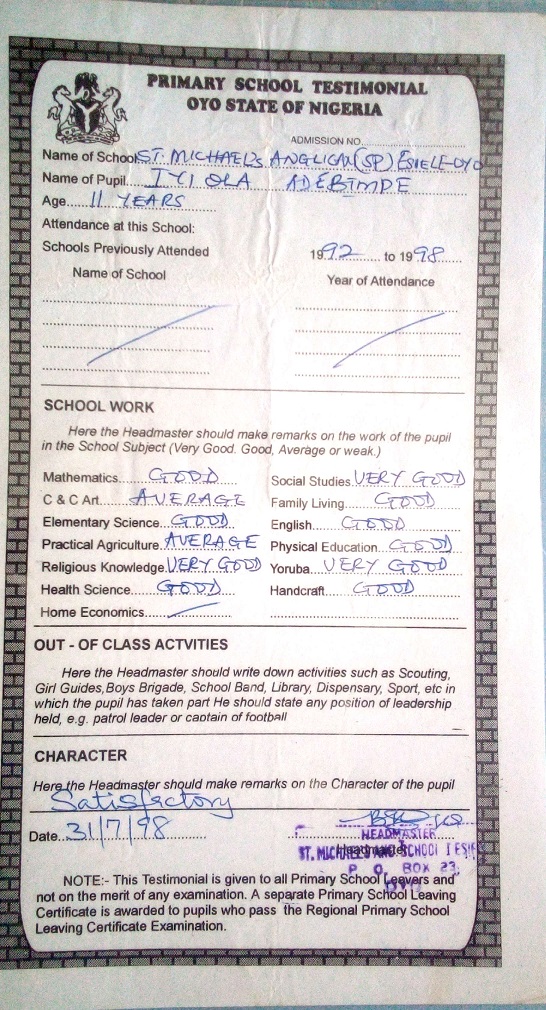 PRIMARY SCHOOL TESTIMONIAL
OYO STATE OF NIGERIA
ADMISSION NO.
Name of School ST. MICHAEL'S ANGLICAN (SP) ESIELE-OYO
Name of Pupil IYIOLA ADEBIMPE
Age 11 YEARS
Attendance at this School:
Schools Previously Attended 1992 to 1998
Name of School Year of Attendance
SCHOOL WORK
Here the Headmaster should make remarks on the work of the pupil
in the School Subject (Very Good. Good, Average or weak.)
Mathematics GOOD Social Studies VERY GOOD
C & C Art AVERAGE Family Living GOOD
Elementary Science GOOD English GOOD
Practical Agriculture AVERAGE Physical Education GOOD
Religious Knowledge VERY GOOD Yoruba VERY GOOD
Health Science GOOD Handcraft GOOD
Home Economics
OUT - OF CLASS ACTVITIES
Here the Headmaster should write down activities such as Scouting,
Girl Guides,Boys Brigade, School Band, Library, Dispensary, Sport, etc in
which the pupil has taken part He should state any position of leadership
held, e.g. patrol leader or captain of football
CHARACTER
Here the Headmaster should make remarks on the Character of the pupil
Satisfactory
Date 31/7/98
HEADMASTER
Headmaster
ST. MICHAEL'S SCHOOL
P. O. BOX 23,
NOTE:- This Testimonial is given to all Primary School Leavers and
not on the merit of any examination. A separate Primary School Leaving
Certificate is awarded to pupils who pass the Regional Primary School
Leaving Certificate Examination.